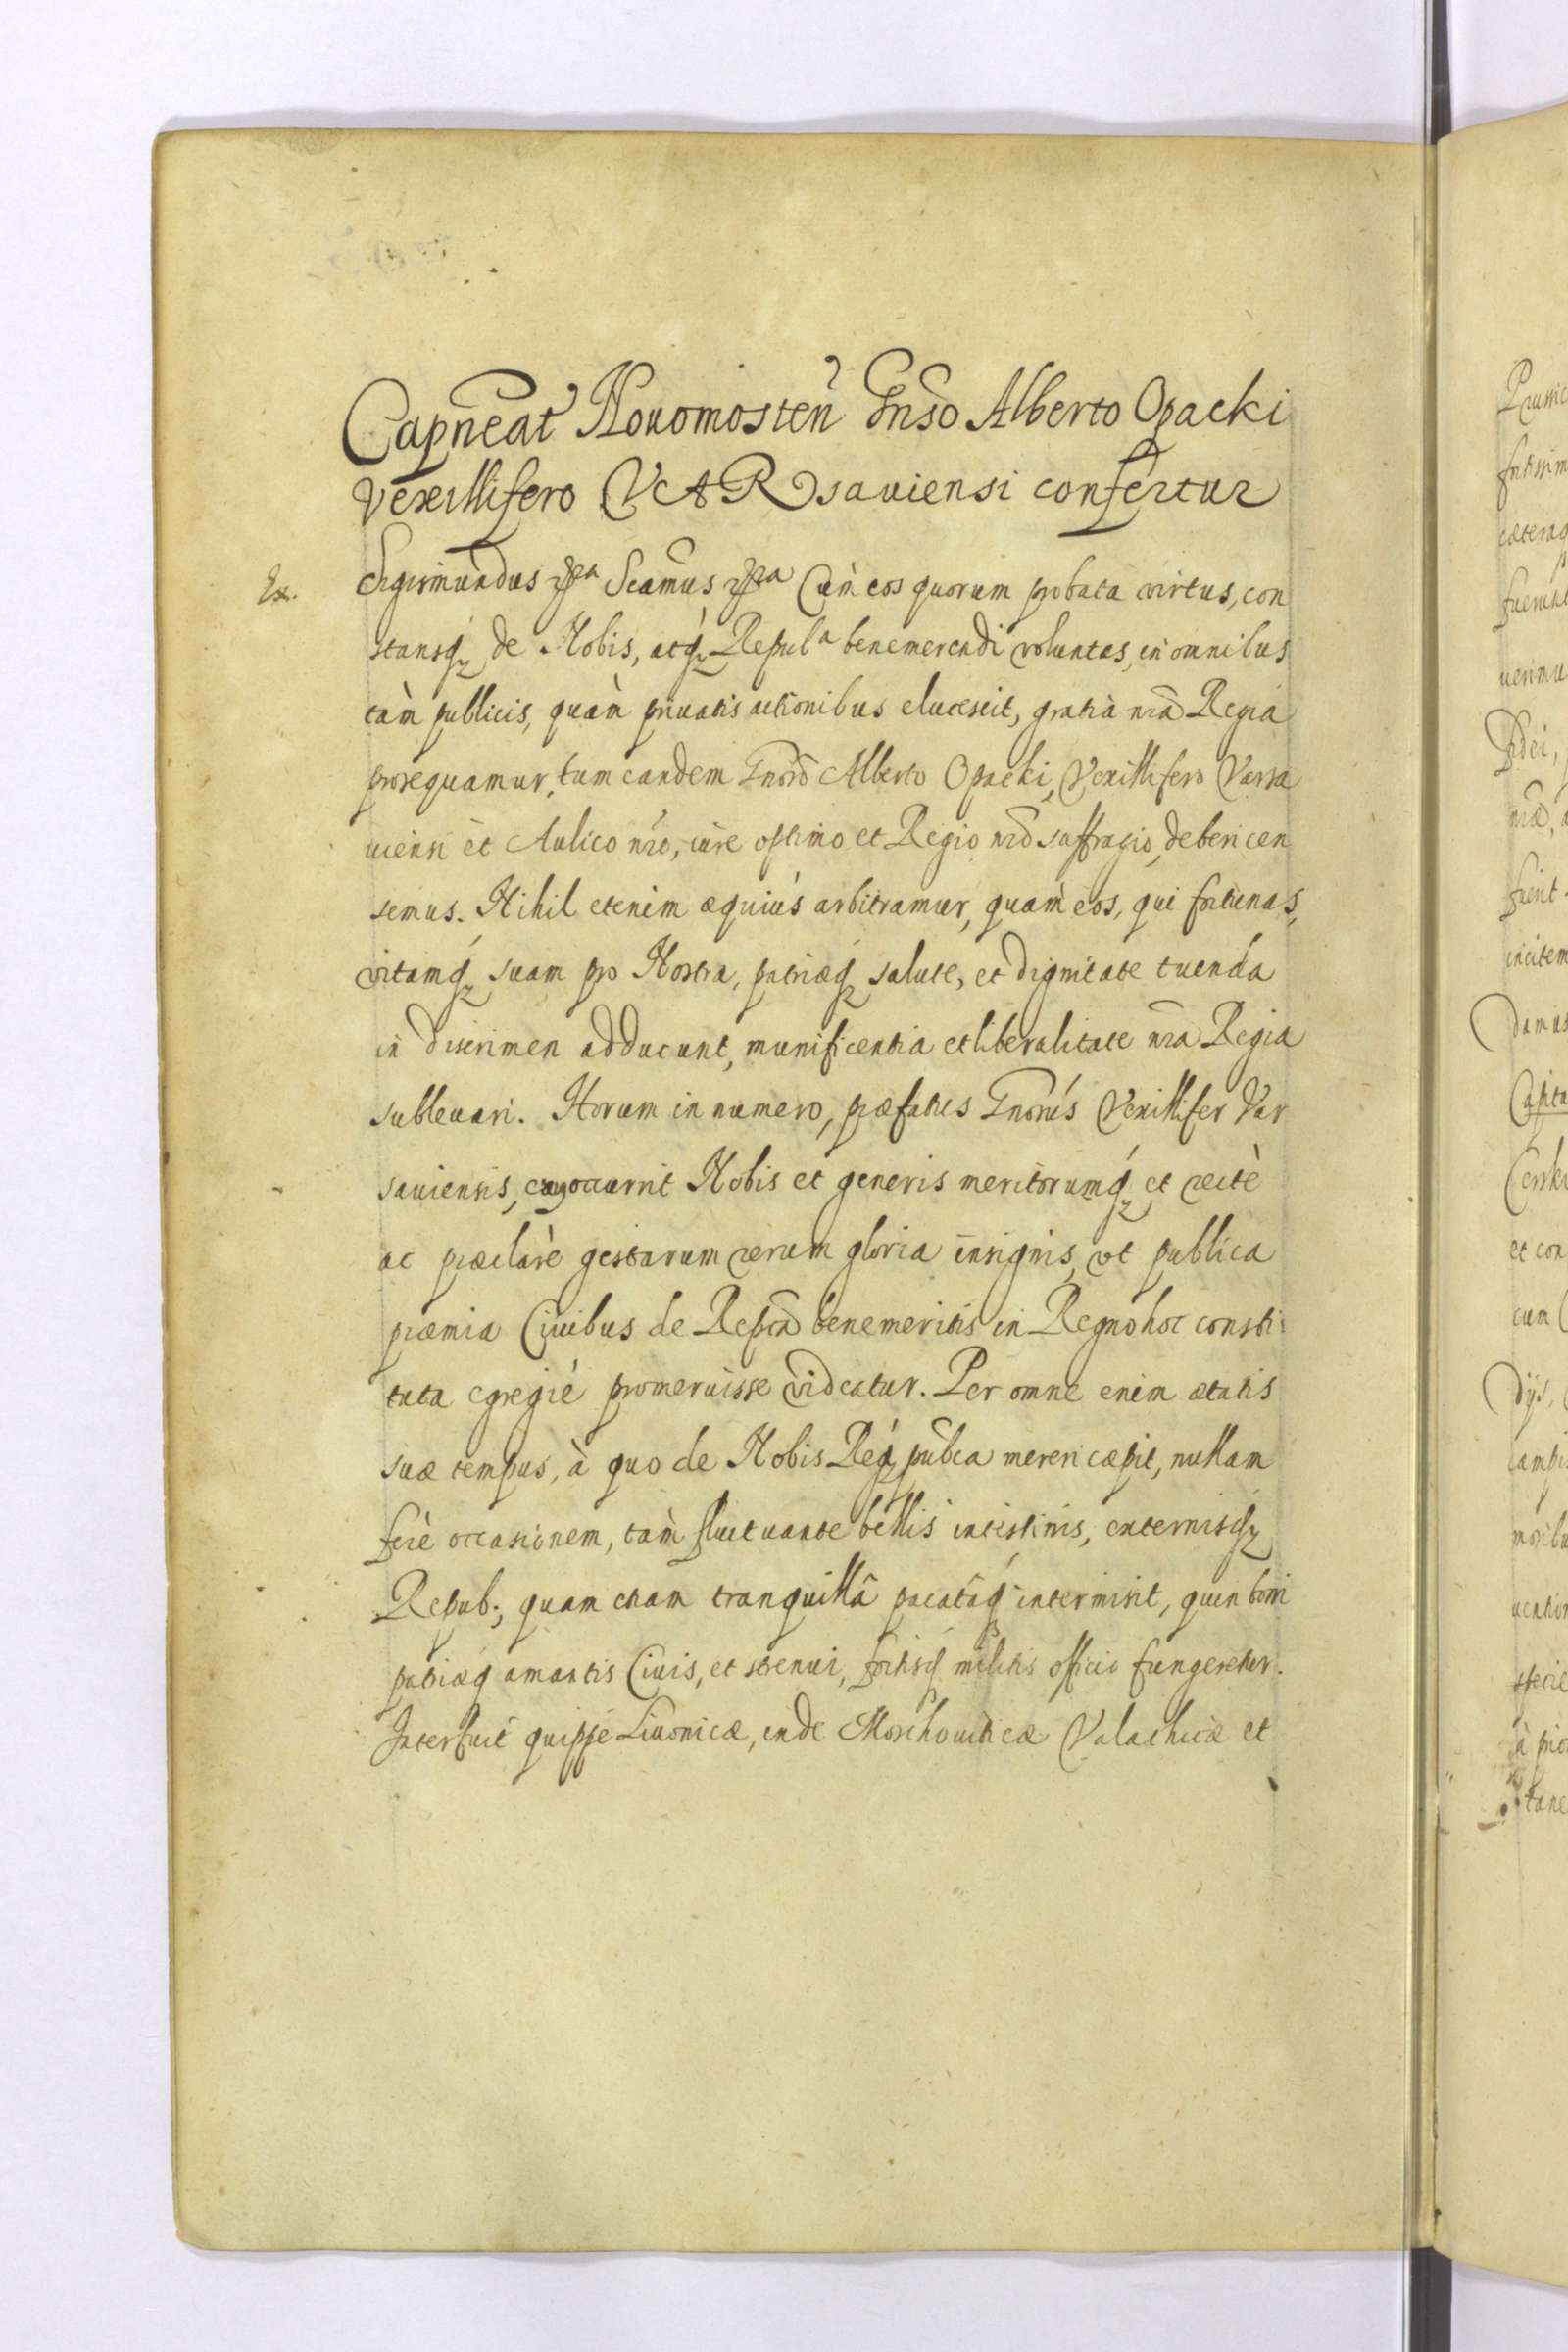 Capneat Nouomosten Gnso Alberto Opacki
Vexillifero VARsauiensi confertur
Ex.
Sigismundus &ca Scamus &ca Cum eos quorum probata virtus, con
stansq; de Nobis, atq; Repul^a benemerendi voluntas, in omnibus
tàm publicis, quàm priuatis actionibus elucescit, gratia nra Regia
prosequamur, tum eandem Gnoso Alberto Opacki, Vexillifero Varsa
uiensi et Aulico nro, iure optimo et Regio nro suffragio, deberi cen
semus. Nihil etenim æquius arbitramur, quàm eos, qui fortunas,
vitamq; suam pro Nostra, patriæq; salute, et dignitate tuenda
in discrimen adducunt, munificentia et liberalitate nra Regia
subleuari. Horum in numero, præfatus Gnosus Vexillifer Var
sauiensis, occurrit Nobis et generis meritorumq; et rectè
ac præclarè gestarum rerum gloria insignis, vt publica
præmia Ciuibus de Repca benemeritis in Regno hoc consti
tuta egregiè promeruisse videatur. Per omne enim ætatis
suæ tempus, à quo de Nobis Req; pubca mereri cæpit, nullam
ferè occasionem, tàm fluctuante bellis intestinis, externisq;
Repub:, quam etiam tranquillâ pacatâq; intermisit, quin boni
patriæq amantis Ciuis, et strenui, fortisq militis officio fungeretur.
Interfuit quippe Liuonicæ, inde Moschouiticæ Valachicæ et
Prussic
fortissim
cæteraq
fuerint
uerimu
fidei,
nræ,
fuerit
incitem
damus
Capita
et con
cum
dijs,
campi
moribu
à prio
tane